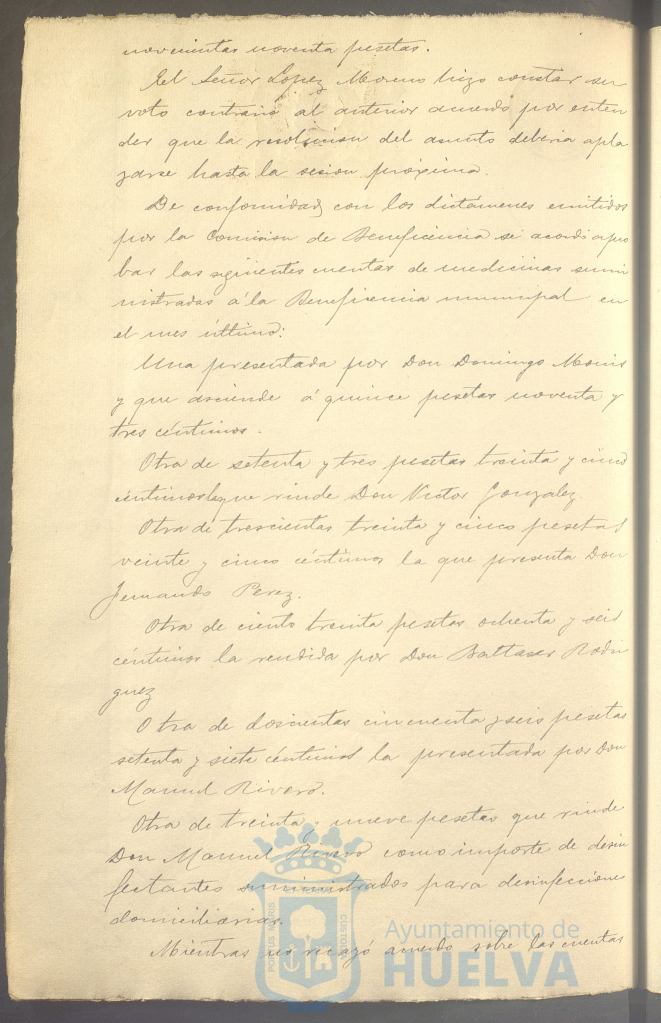 novecientas noventa pesetas.
El Señor Lopez Moreno hizo constar su
voto contrario al anterior acuerdo por enten
der que la resolucion del asunto deberia apla
zarse hasta la sesion próxima.
De conformidad con los dictámenes emitidos
por la Comision de Beneficencia se acordó apro
bar las siguientes cuentas de medicinas sumi
nistradas á la Beneficencia municipal en
el mes último:
Una presentada por Don Domingo
y que asciende á quince pesetas noventa y
tres céntimos.
Otra de setenta y tres pesetas treinta y cinco
céntimos la que rinde Don Victor Gonzalez.
Otra de trescientas treinta y cinco pesetas
veinte y cinco céntimos la que presenta Don
Fernando Perez.
Otra de ciento treinta pesetas ochenta y seis
céntimos la rendida por Don Baltasar Rodri
guez
Otra de doscientas cincuenta y seis pesetas
setenta y siete céntimos la presentada por Don
Manuel Rivero.
Otra de treinta y nueve pesetas que rinde
Don Manuel Rivero como importe de desin
fectantes suministrados para desinfecciones
domiciliarias.
Mientras no recayó acuerdo sobre las cuentas
PORTUS MARIS
CUSTODIA
Ayuntamiento de
HUELVA